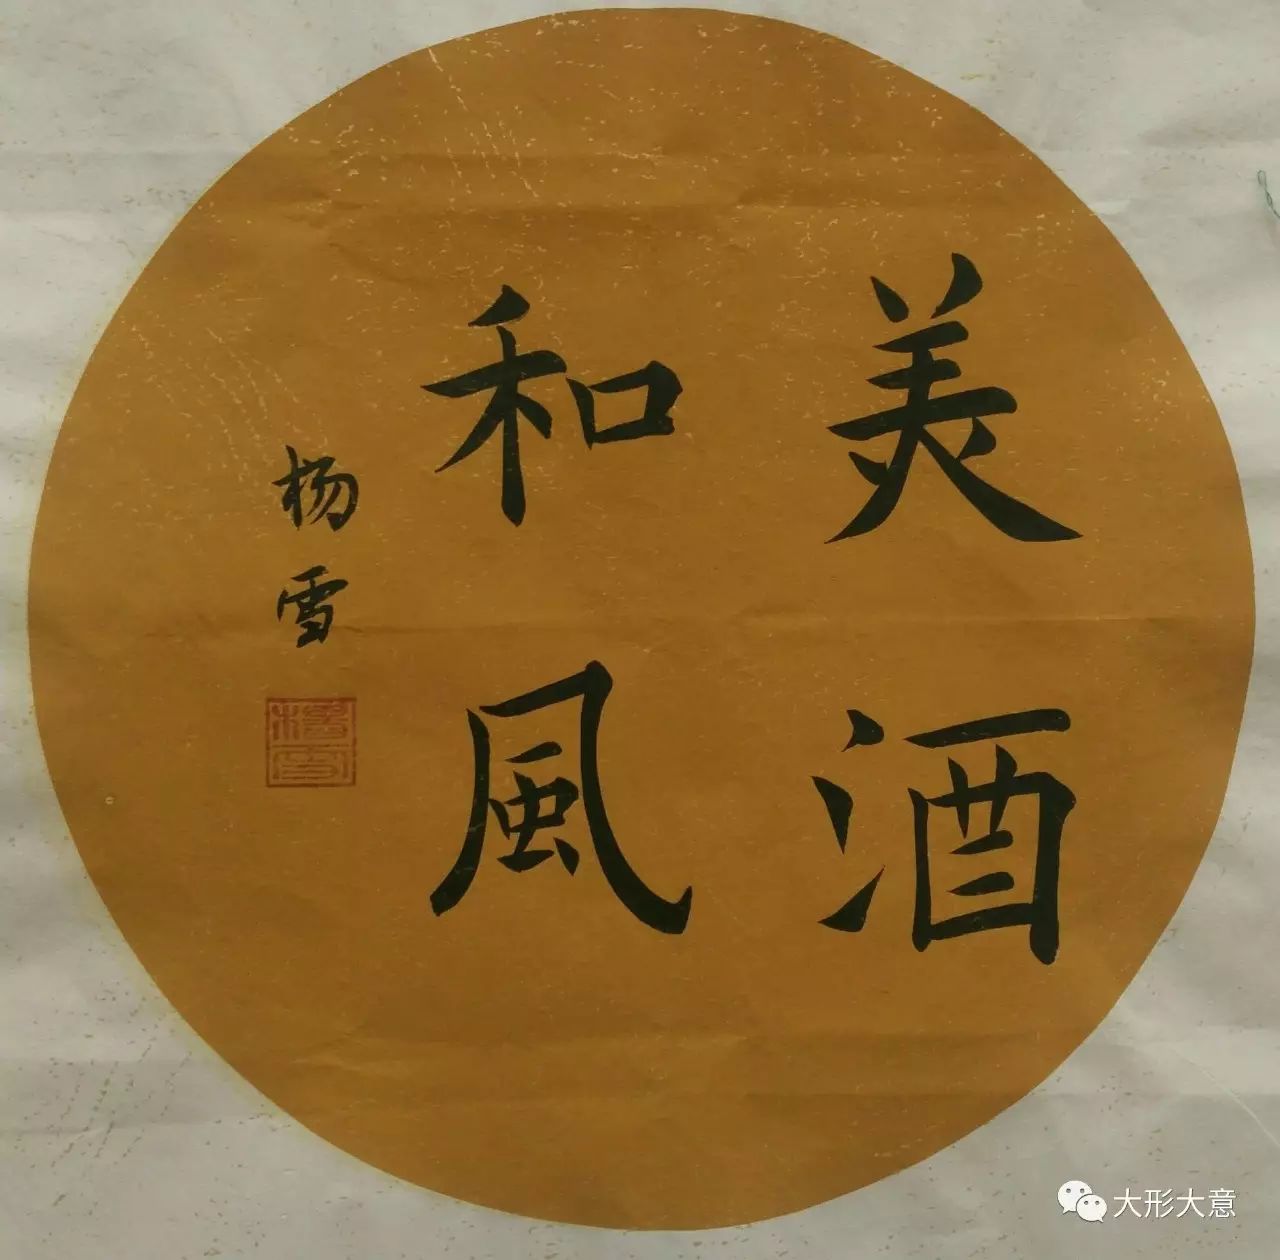 美酒
和風
杨雪
楊雪
大形大意